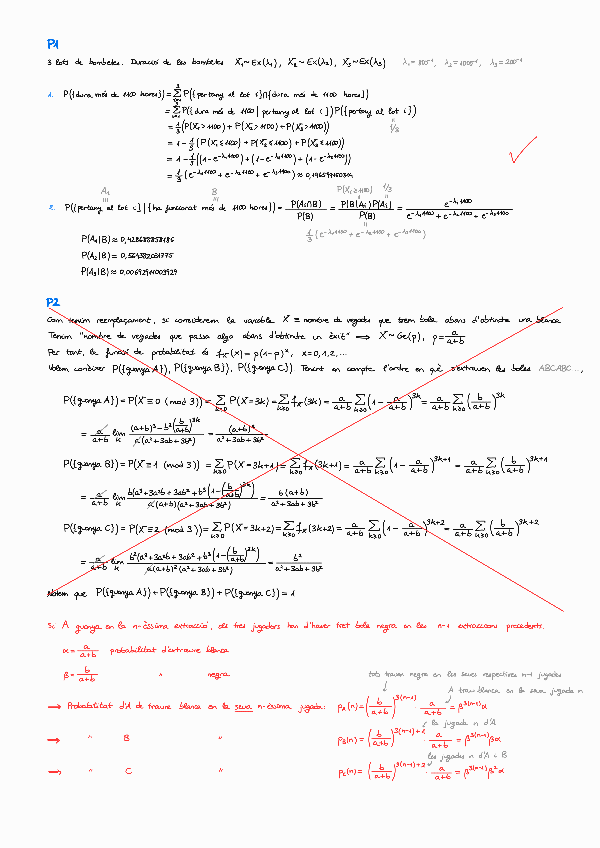 P1
3 lots de bombetes. Duració de les bombetes X₁~Ex(λ₁), X₂~Ex(λ₂), X₃~Ex(λ₃)
1. P({dura més de 1100 hores}) = Σ P({pertany al lot i}∩{dura més de 1100 hores})
= Σ P({dura més de 1100 | pertany al lot i}) P({pertany al lot i})
1/3
= 1/3 (P(X₁>1100) + P(X₂>1100) + P(X₃>1100))
= 1 - 1/3 (P(X₁≤1100) + P(X₂≤1100) + P(X₃≤1100))
= 1 - 1/3 ((1-e^-λ₁1100) + (1-e^-λ₂1100) + (1-e^-λ₃1100))
= 1/3 (e^-λ₁1100 + e^-λ₂1100 + e^-λ₃1100) ≈
A₁ B P(X₁≥1100) 1/3
2. P({pertany al lot i} | {ha funcionat més de 1100 hores}) = P(Aᵢ∩B)/P(B) = P(B|Aᵢ)P(Aᵢ)/P(B) = e^-λᵢ1100/(e^-λ₁1100 + e^-λ₂1100 + e^-λ₃1100)
1/3 (e^-λ₁1100 + e^-λ₂1100 + e^-λ₃1100)
P(A₁|B) ≈
P(A₂|B) ≈
P(A₃|B) ≈
P2
Com tenim reemplaçament, si considerem la variable X ≡ nombre de vegades que traem bola abans d'obtindre una blanca
Tenim "nombre de vegades que passa algo abans d'obtindre un èxit" ⟹ X ~ Ge(p), p = a/(a+b)
Per tant, la funció de probabilitat és f_X(x) = p(1-p)^x, x=0,1,2,...
Volem conèixer P({guanya A}), P({guanya B}), P({guanya C}). Tenint en compte l'ordre en què s'extrauen les boles ABCABC...,
P({guanya A}) = P(X ≡ 0 (mod 3)) = Σ P(X=3k) = Σ f_X(3k) = a/(a+b) Σ (1 - a/(a+b))^3k = a/(a+b) Σ (b/(a+b))^3k
= a/(a+b) lim ((a+b)³ - b³(b/(a+b))^3k)/(a(a²+3ab+3b²)) = (a+b)²/(a²+3ab+3b²)
P({guanya B}) = P(X ≡ 1 (mod 3)) = Σ P(X=3k+1) = Σ f_X(3k+1) = a/(a+b) Σ (1 - a/(a+b))^3k+1 = a/(a+b) Σ (b/(a+b))^3k+1
= a/(a+b) lim = b(a+b)/(a²+3ab+3b²)
P({guanya C}) = P(X ≡ 2 (mod 3)) = Σ P(X=3k+2) = Σ f_X(3k+2) = a/(a+b) Σ (1 - a/(a+b))^3k+2 = a/(a+b) Σ (b/(a+b))^3k+2
= a/(a+b) lim = b²/(a²+3ab+3b²)
Notem que P({guanya A}) + P({guanya B}) + P({guanya C}) = 1
Si A guanya en la n-èssima extracció, els tres jugadors han d'haver tret bola negra en les n-1 extraccions precedents.
α = a/(a+b) probabilitat d'extraure blanca
β = b/(a+b) " negra
tots trauen negra en les seues respectives n-1 jugades
A trau blanca en la seua jugada n
⟹ Probabilitat d'A de traure blanca en la seua n-èsima jugada: p_A(n) = (b/(a+b))^3(n-1) · a/(a+b) = β^3(n-1) α
la jugada n d'A
⟹ " B " p_B(n) = (b/(a+b))^3(n-1)+1 · a/(a+b) = β^3(n-1) βα
les jugades n d'A i B
⟹ " C " p_C(n) = (b/(a+b))^3(n-1)+2 · a/(a+b) = β^3(n-1) β² α